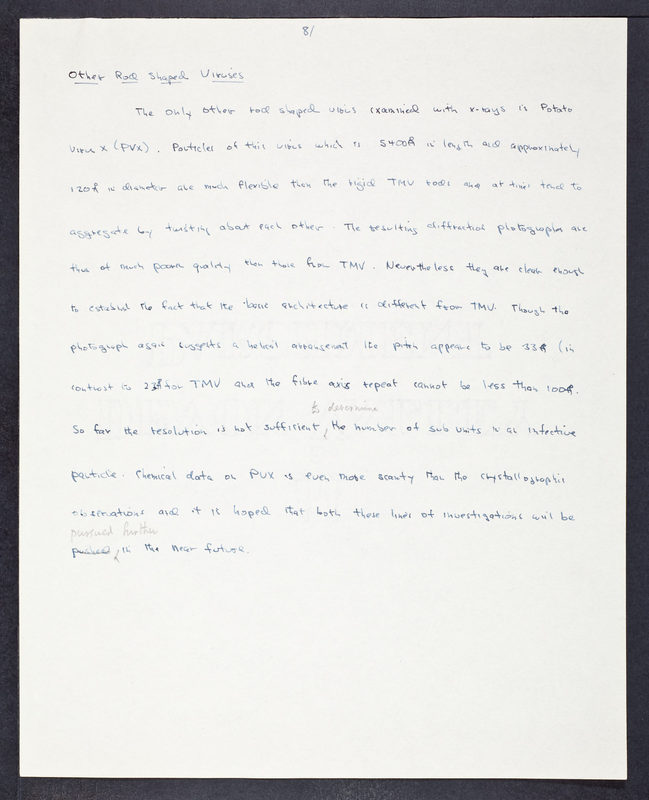 8/
Other Rod Shaped Viruses
The only other rod shaped virus examined with x-rays is Potato
virus X (PVX). Particles of this virus which is 5400Å in length and approximately
120Å in diameter are much flexible than the rigid TMV rods and at times tend to
aggregate by twisting about each other. The resulting diffraction photographs are
thus of much poorer quality than those from TMV. Nevertheless they are clear enough
to establish the fact that the basic architecture is different from TMV. Though the
photograph again suggests a helical arrangement the pitch appears to be 33Å (in
contrast to 23Å for TMV and the fibre axis repeat cannot be less than 100Å.
to determine
So far the resolution is not sufficient the number of sub units in an infective
particle. Chemical data on PVX is even more scanty than the crystallographic
observations and it is hoped that both these lines of investigations will be
pursued further
pushed in the near future.